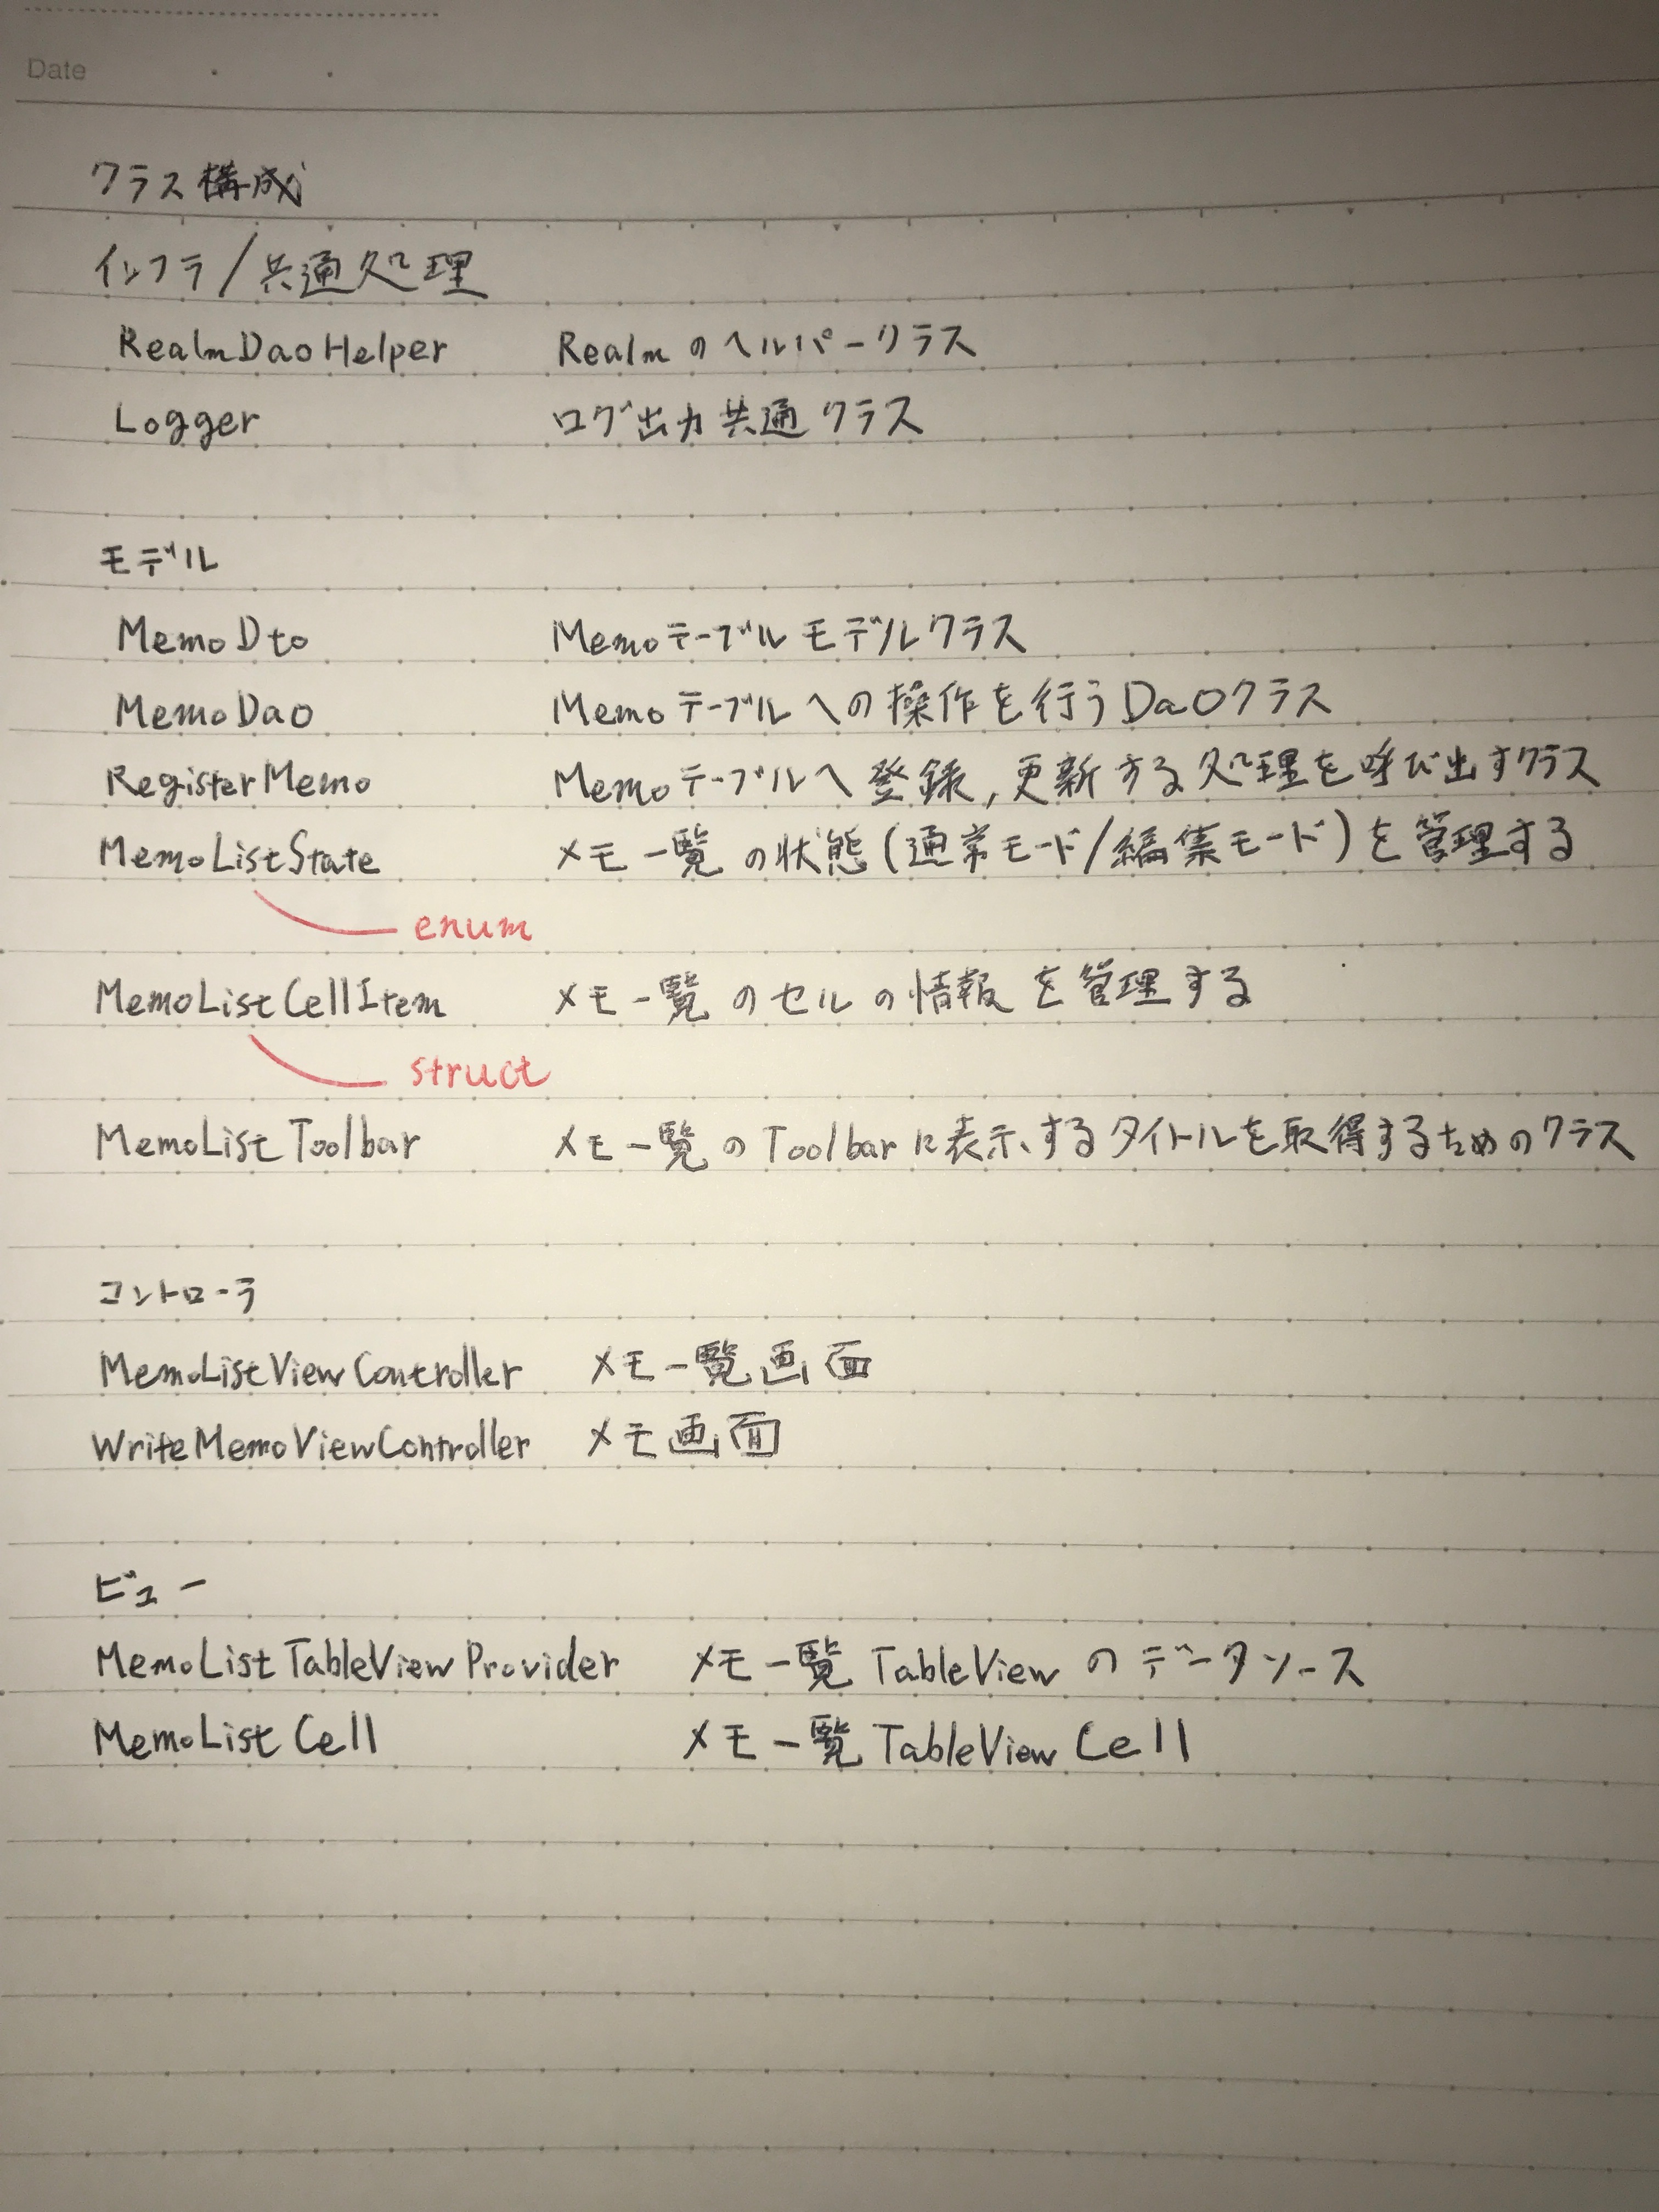 Date
クラス構成
インフラ/共通処理
RealmDaoHelper Realmのヘルパークラス
Logger ログ出力共通クラス
モデル
MemoDto Memoテーブルモデルクラス
MemoDao Memoテーブルへの操作を行うDaoクラス
RegisterMemo Memoテーブルへ登録,更新する処理を呼び出すクラス
MemoListState メモ一覧の状態(通常モード/編集モード)を管理する
enum
MemoListCellItem メモ一覧のセルの情報を管理する
struct
MemoListToolbar メモ一覧のToolbarに表示するタイトルを取得するためのクラス
コントローラ
MemoListViewController メモ一覧画面
WriteMemoViewController メモ画面
ビュー
MemoListTableViewProvider メモ一覧TableViewのデータソース
MemoListCell メモ一覧TableViewCell